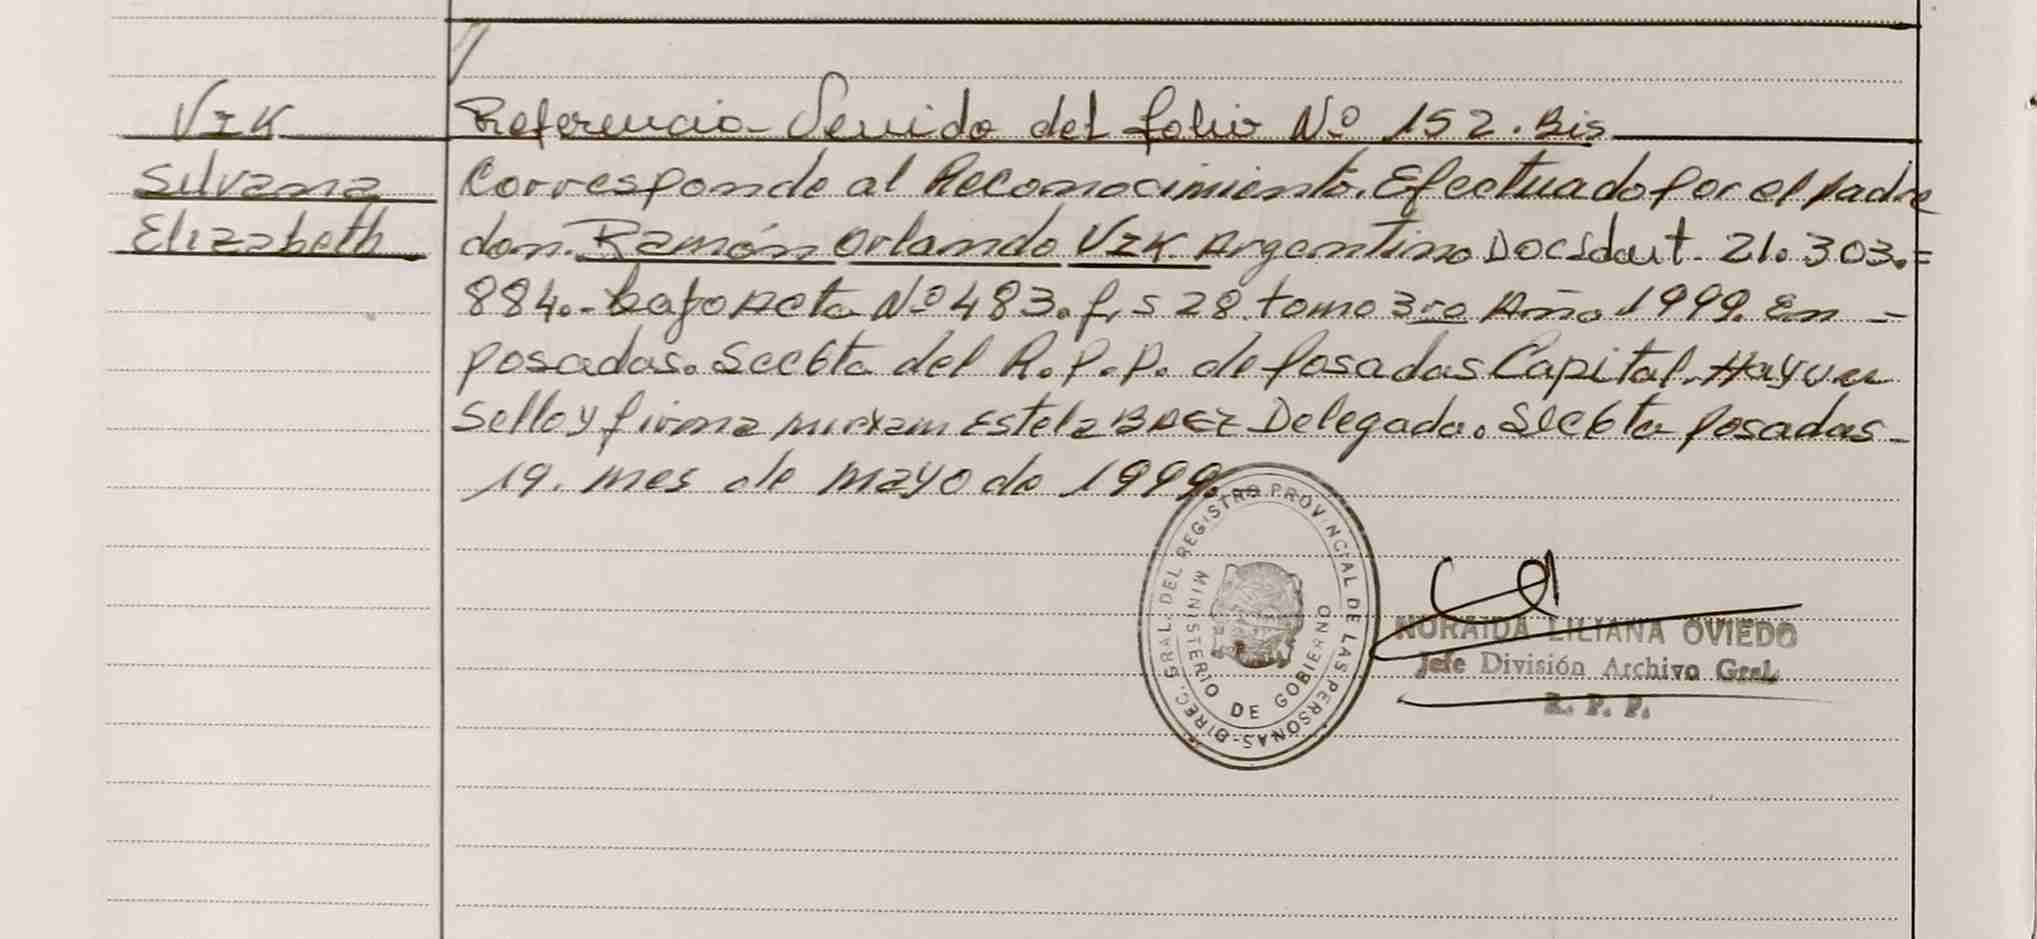 VIK
Silvana
Elizabeth
Referencia Venido del folio Nº 152. Bis
Corresponde al Reconocimiento. Efectuado por el padre
don. Ramón Orlando VIK Argentino Doc Idait. 21.303.=
884.- bajo Acta Nº 483. f,s 28. tomo 3ro Año 1999. En -
posadas. Secc 6ta del R.P.P. de posadas Capital. Hay un
Sello y firma Miriam Estela BAEZ Delegada. Secc 6ta posadas-
19. mes de mayo de 1999.
DIREC. GRAL. DEL REGISTRO PROVINCIAL DE LAS PERSONAS-
MINISTERIO DE GOBIERNO
NORAIDA LILIANA OVIEDO
Jefe División Archivo Gral.
R. P. P.